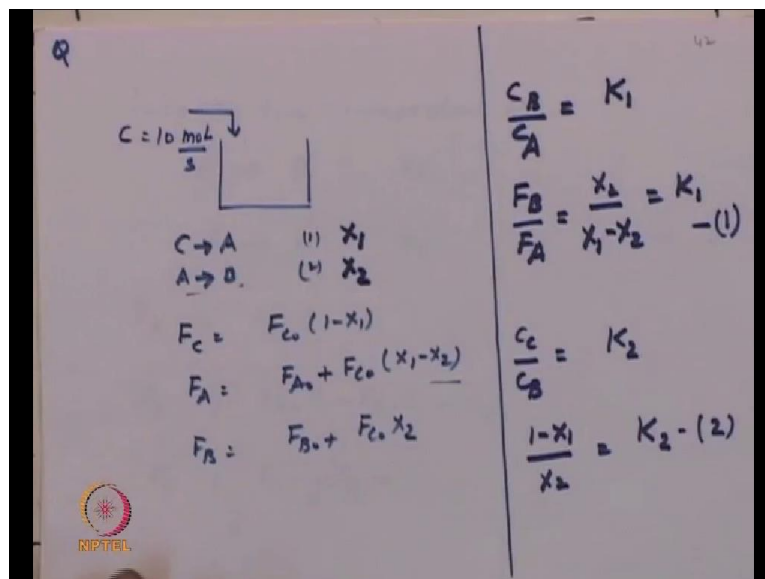 Q
42
C = 10 mol/s
C → A (1) X₁
A → B. (2) X₂
F_C = F_C₀ (1-X₁)
F_A = F_A₀ + F_C₀ (X₁-X₂)
F_B = F_B₀ + F_C₀ X₂
C_B/C_A = K₁
F_B/F_A = X₂/(X₁-X₂) = K₁ -(1)
C_C/C_B = K₂
(1-X₁)/X₂ = K₂ -(2)
NPTEL